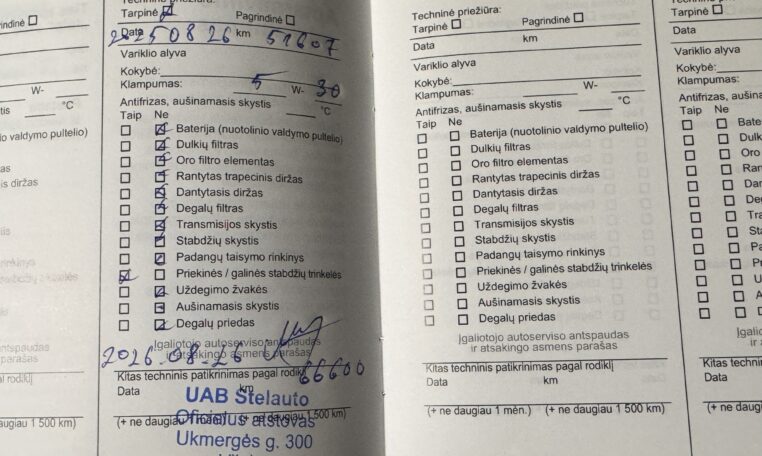 grindinė
W-
°C
o valdymo pultelio)
as
is diržas
iis
rinkinys
stabdžių trinkelės
antspaudas
parašas
al rodiklį
augiau 1 500 km)
Techninė priežiūra:
Tarpinė Pagrindinė
Data 2025 08 26 km 51607
Variklio alyva
Kokybė:
Klampumas: 5 W- 30
Antifrizas, aušinamasis skystis °C
Taip Ne
Baterija (nuotolinio valdymo pultelio)
Dulkių filtras
Oro filtro elementas
Rantytas trapecinis diržas
Dantytasis diržas
Degalų filtras
Transmisijos skystis
Stabdžių skystis
Padangų taisymo rinkinys
Priekinės / galinės stabdžių trinkelės
Uždegimo žvakės
Aušinamasis skystis
Degalų priedas
Įgaliotojo autoserviso antspaudas
ir atsakingo asmens parašas
2026.08.26 66600
Kitas techninis patikrinimas pagal rodiklį
Data km
UAB Stelauto
(+ ne daugiau 1 mėn.) (+ ne daugiau 1 500 km)
Oficialus atstovas
Ukmergės g. 300
Techninė priežiūra:
Tarpinė Pagrindinė
Data km
Variklio alyva
Kokybė:
Klampumas: W-
Antifrizas, aušinamasis skystis °C
Taip Ne
Baterija (nuotolinio valdymo pultelio)
Dulkių filtras
Oro filtro elementas
Rantytas trapecinis diržas
Dantytasis diržas
Degalų filtras
Transmisijos skystis
Stabdžių skystis
Padangų taisymo rinkinys
Priekinės / galinės stabdžių trinkelės
Uždegimo žvakės
Aušinamasis skystis
Degalų priedas
Įgaliotojo autoserviso antspaudas
ir atsakingo asmens parašas
Kitas techninis patikrinimas pagal rodiklį
Data km
(+ ne daugiau 1 mėn.) (+ ne daugiau 1 500 km)
Tarpinė
Data
Variklio alyva
Kokybė:
Klampumas:
Antifrizas, auš
Taip Ne
Bate
Dulk
Oro
Ran
Dan
Deg
Tra
Sta
Pa
Pr
U
A
D
Įgalio
ir a
Kitas techni
Data
(+ ne daug